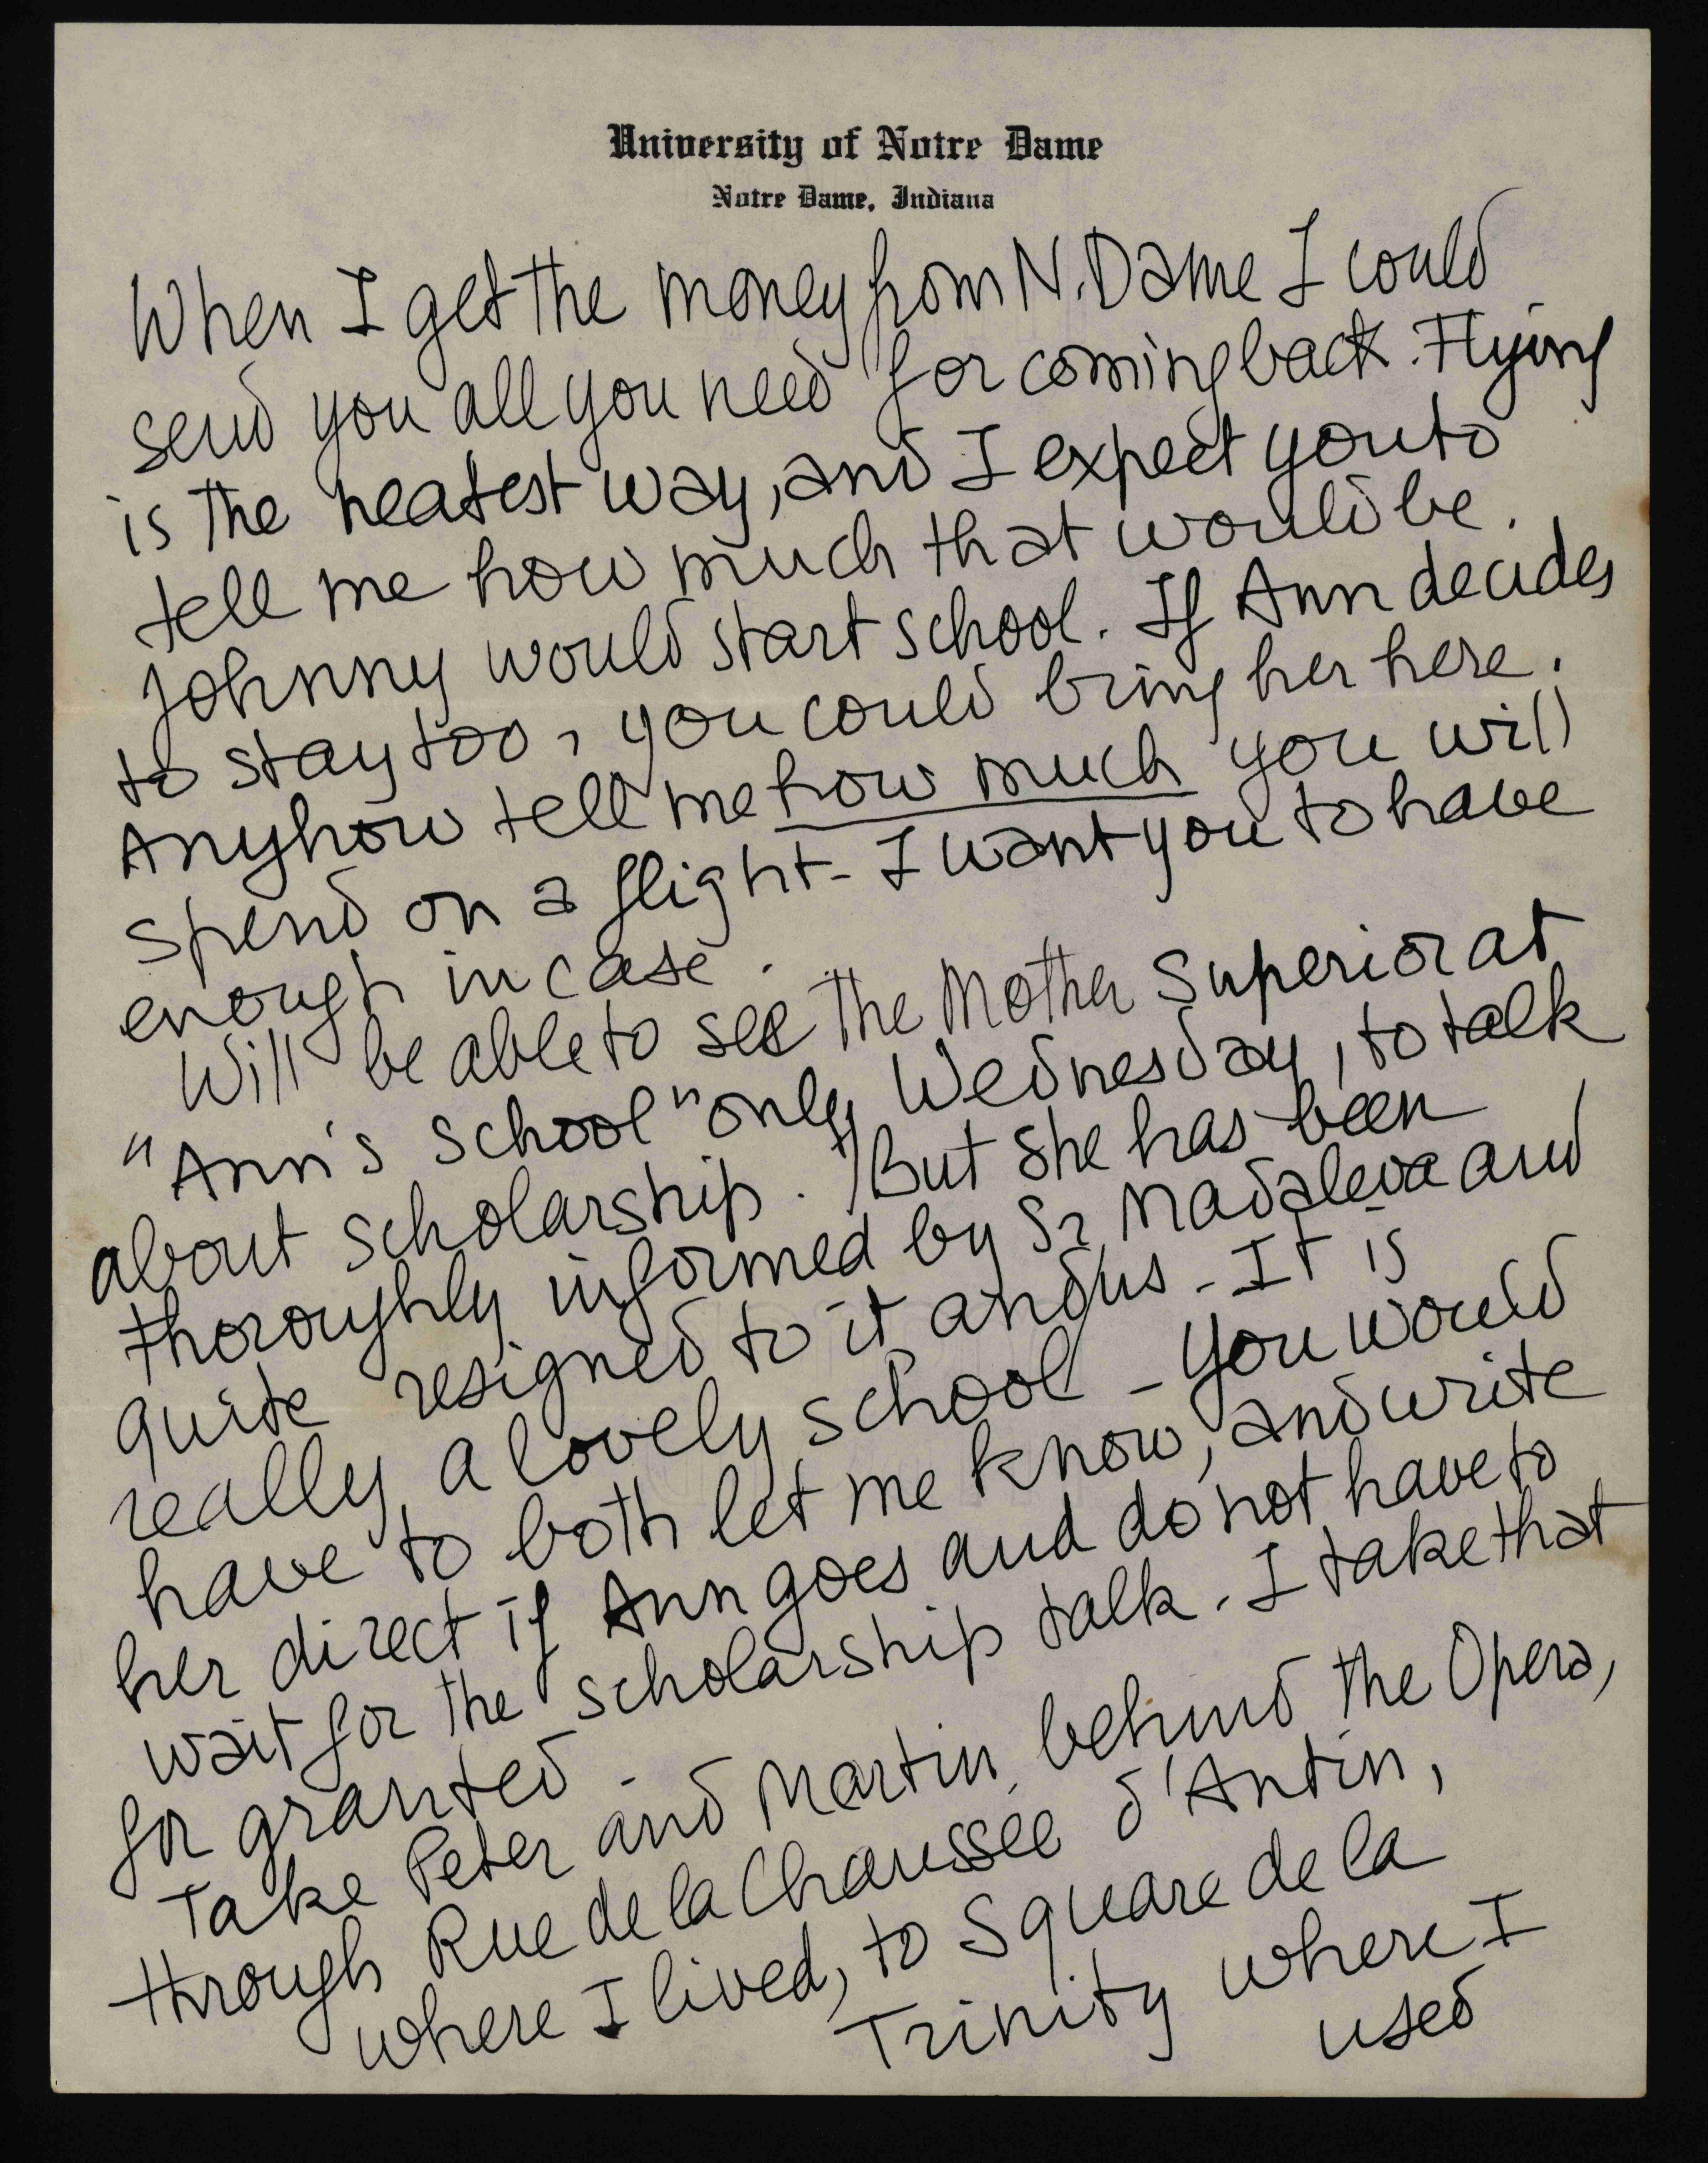 University of Notre Dame
Notre Dame, Indiana
When I get the money from N. Dame I could
send you all you need for coming back. Flying
is the neatest way, and I expect you to
tell me how much that would be.
Johnny would start school. If Ann decides
to stay too, you could bring her here.
Anyhow tell me how much you will
spend on a flight - I want you to have
enough in case.
Will be able to see the Mother Superior at
"Ann's school" only Wednesday, to talk
about scholarship. But she has been
thoroughly informed by Sr Madaleva and
quite resigned to it and us - It is
really a lovely school - You would
have to both let me know, and write
her direct if Ann goes and do not have to
wait for the scholarship talk. I take that
for granted -
Take Peter and Martin behind the Opera,
through Rue de la Chaussée d'Antin,
where I lived, to Square de la
Trinity where I
used